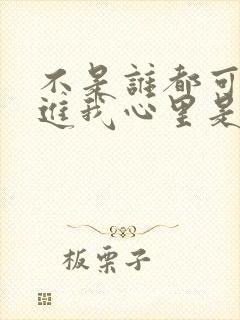 不是誰都可
進我心里是
板栗子